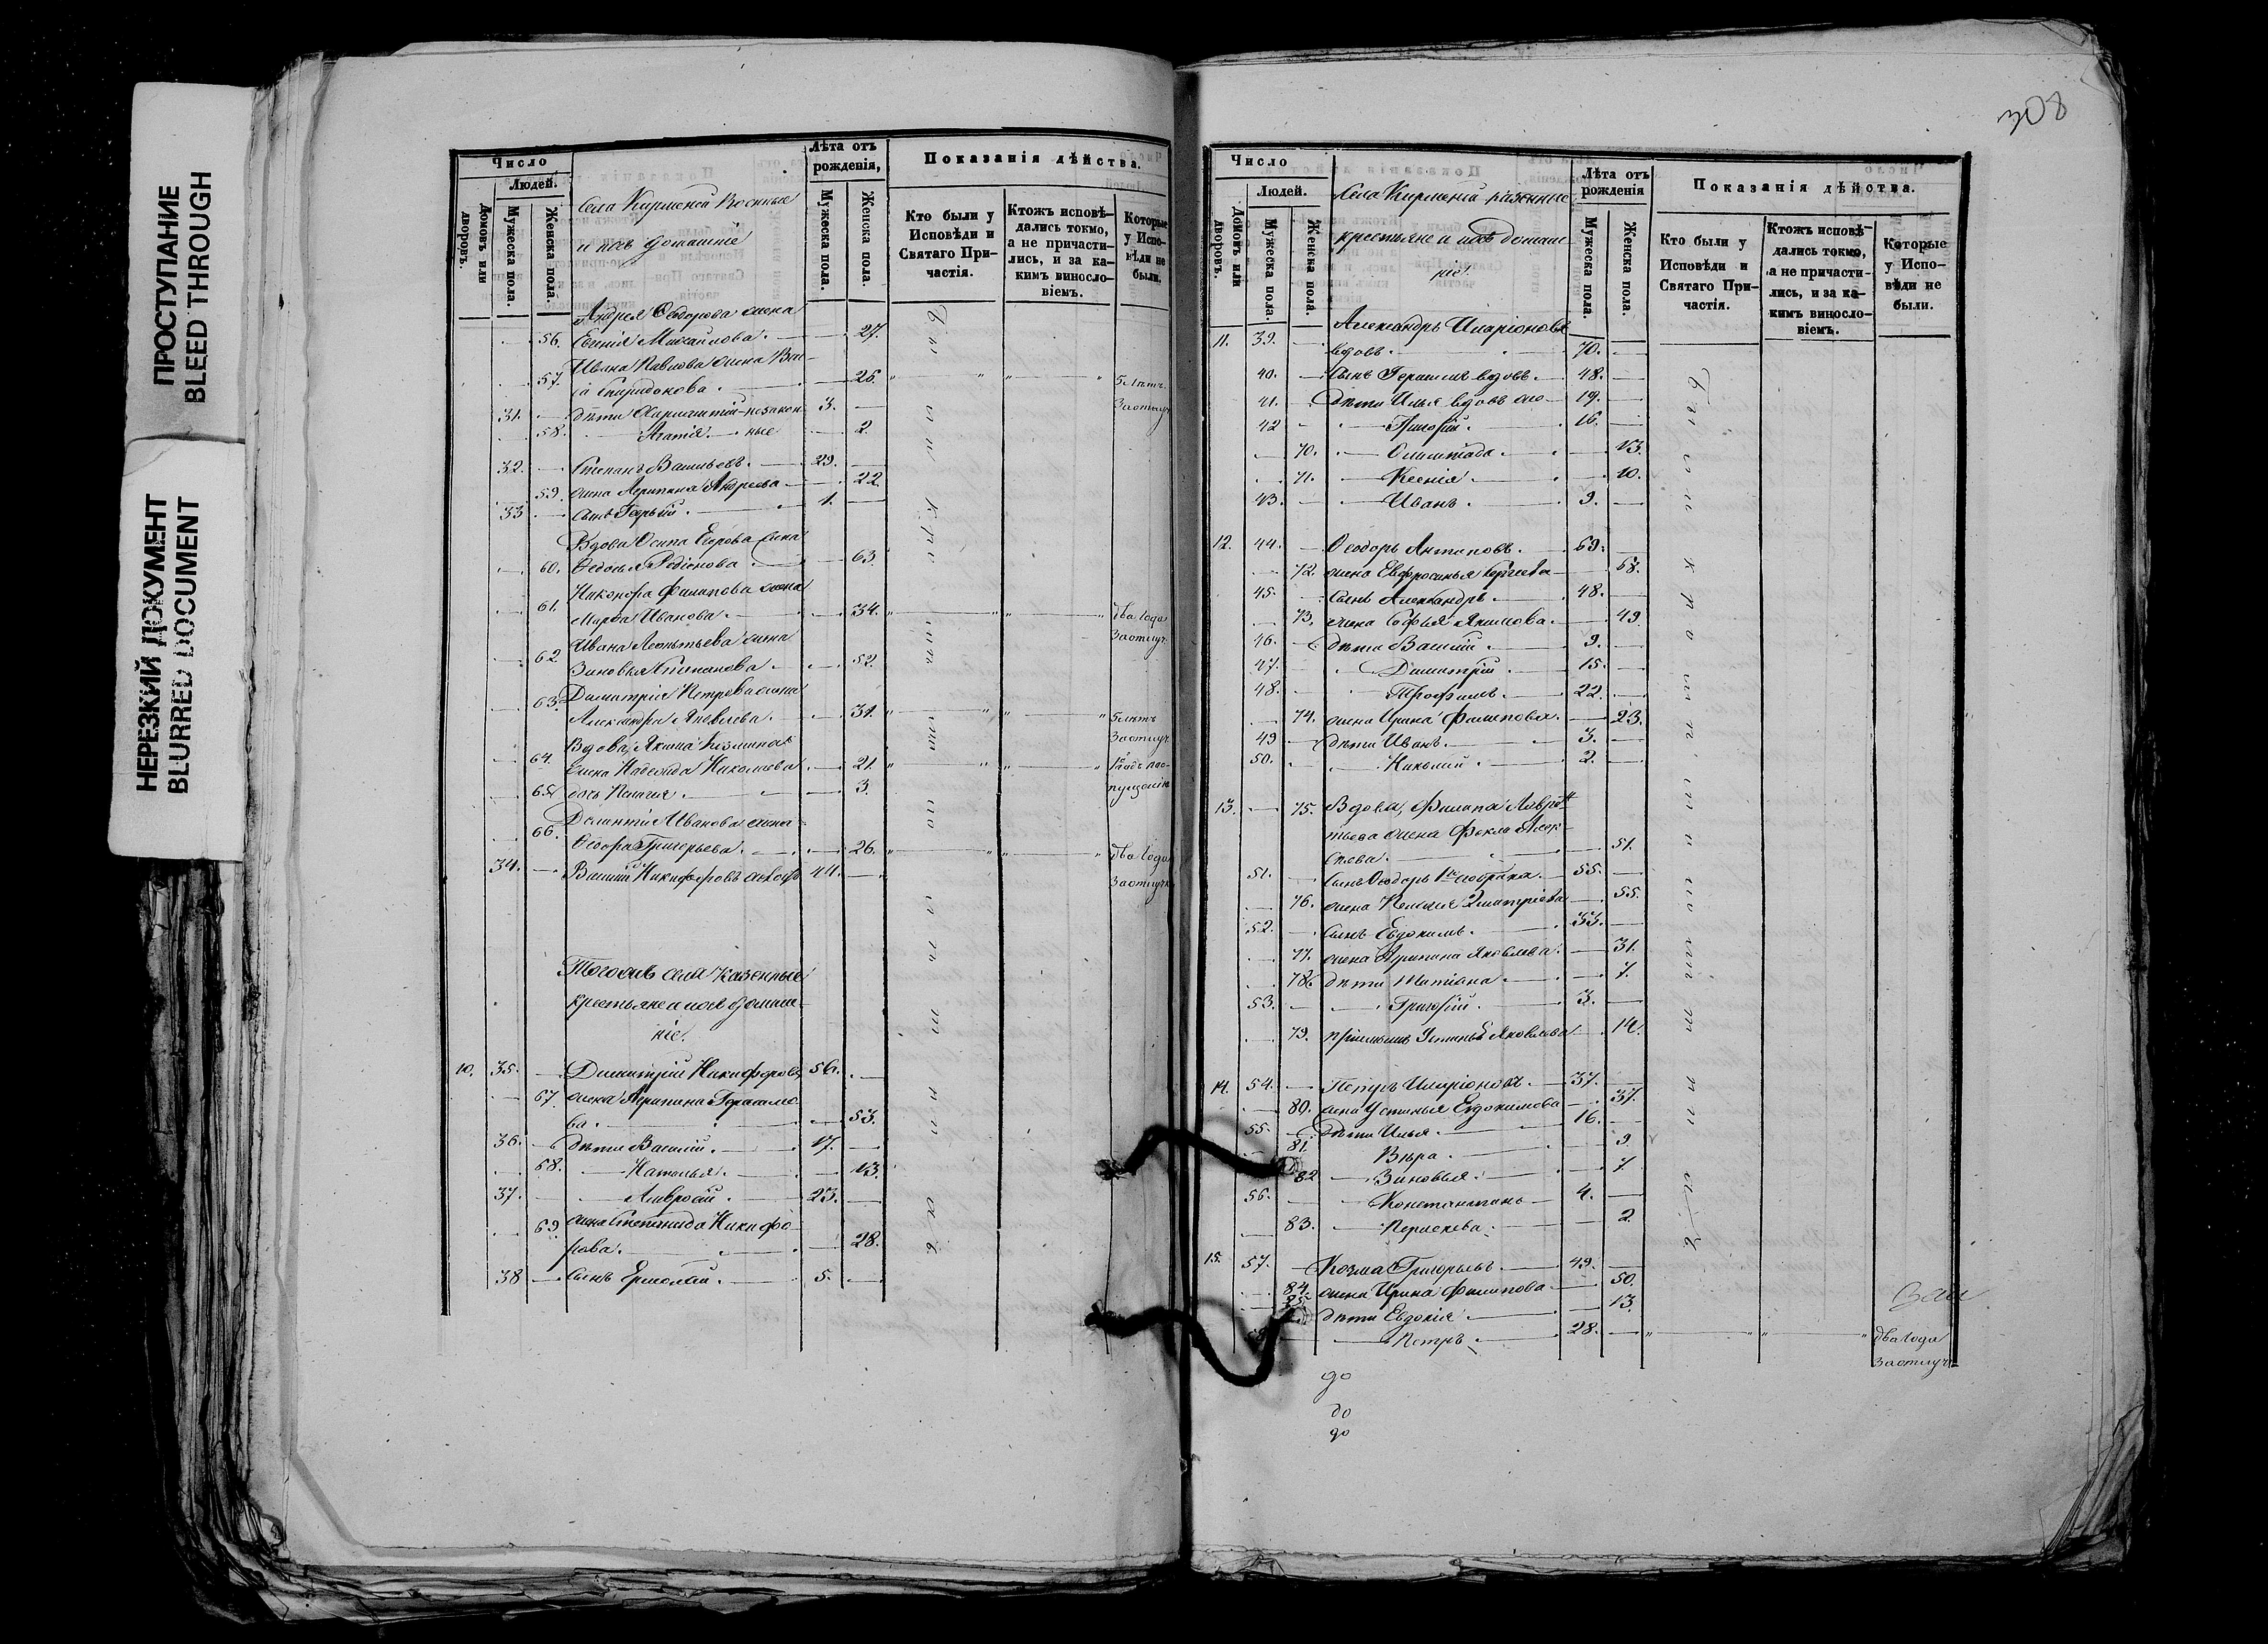 ПРОСТУПАНИЕ
BLEED THROUGH
НЕРЕЗКИЙ ДОКУМЕНТ
BLURRED DOCUMENT
Число
Людей.
Домовъ или дворовъ.
Мужеска пола.
Женска пола.
Села Кирменей Военные
и ихъ домашніе
Лѣта отъ рожденія,
Мужеска пола.
Женска пола.
Показанія дѣйства.
Кто были у Исповѣди и Святаго Причастія.
Ктожъ исповѣ-
дались токмо,
а не причасти-
лись, и за ка-
кимъ виносло-
віемъ.
Которые
у Испо-
вѣди не
были.
Андрея Ѳедорова жена
56. Михайлова. 27.
Ивана Павлова жена
57. Спиридонова. 25. 5 лѣтъ
за отлуч.
31. дѣти 3.
58. Агатія 2.
32. Степанъ Васильевъ. 29.
59. жена Агрипина Андреева 22.
33. сынъ 1.
Вдова Осипа Егорова жена
60. Федосья Родіонова 63.
Никонора Филипова жена
61. Марѳа Иванова. 34. два года
за отлуч.
Ивана Леонтьева жена
62. Зиновья Степанова. 52.
63. Димитрія Петрова жена
Александра Яковлева. 31. 5 лѣтъ
за отлуч.
Вдова, Якима Козмина
64. жена Надежда Николаева 21.
65. дочь Пелагея 3.
Иванова жена
66. Ѳедора Григорьева. 26. два года
за отлуч.
34. Василий Никифоровъ холостъ 44.
Тогожъ села казенные
крестьяне и ихъ домаш-
ніе.
10. 35. Димитрій Никифоровъ 56.
67. жена Агрипина Герасимо-
ва. 53.
36. дѣти Василій. 17.
68. Наталья. 13.
37. Амвросій. 23.
69. жена Степанида Никифо-
рова. 28.
38. сынъ Ермолай. 5.
308
Число
Людей.
Домовъ или дворовъ.
Мужеска пола.
Женска пола.
Села Кирменей казенные
крестьяне и ихъ домаш-
ніе.
Лѣта отъ рожденія
Мужеска пола.
Женска пола.
Показанія дѣйства.
Кто были у
Исповѣди и
Святаго При-
частія.
Ктожъ исповѣ-
дались токмо,
а не причасти-
лись, и за ка-
кимъ виносло-
віемъ.
Которые
у Испо-
вѣди не
были.
11. 39. Александръ Иларіоновъ
вдовъ. 70.
40. сынъ Герасимъ вдовъ. 48.
41. дѣти Илья вдовъ 19.
42. Григорій. 16.
70. Олимпіада. 13.
71. Ксенія. 10.
43. Иванъ. 9.
12. 44. Ѳеодоръ Антоновъ. 69.
72. жена Евфросинья Сергѣева 68.
45. сынъ Александръ. 48.
73. жена Софья Якимова. 49.
46. дѣти Василій. 9.
47. Димитрій. 15.
48. Трофимъ. 22.
74. жена Ирина Филипова. 23.
49. дѣти Иванъ. 3.
50. Николай. 2.
13. 75. Вдова, Филипа Лавре-
тьева жена Фекла
51.
51. сынъ Ѳеодоръ 1го брака. 55.
76. жена Пелагея Димитріева 55.
52. сынъ Евдокимъ. 33.
77. жена Агрипина Яковлева. 31.
78. дѣти Татіана. 7.
53. Григорій. 3.
79. пріемышъ Устинья Яковлева 14.
14. 54. Петръ Иларіоновъ. 37.
80. жена Устинья Евдокимова 37.
55. дѣти Илья. 16.
81. Вѣра. 9.
82. Зиновья. 7.
56. Константинъ 4.
83. Пераскева. 2.
15. 57. Козма Григорьевъ. 49.
84. жена Ирина Филипова 50.
85. дѣти Евдокія. 13.
58. Петръ. 28. два года
за отлуч.
до
до
до